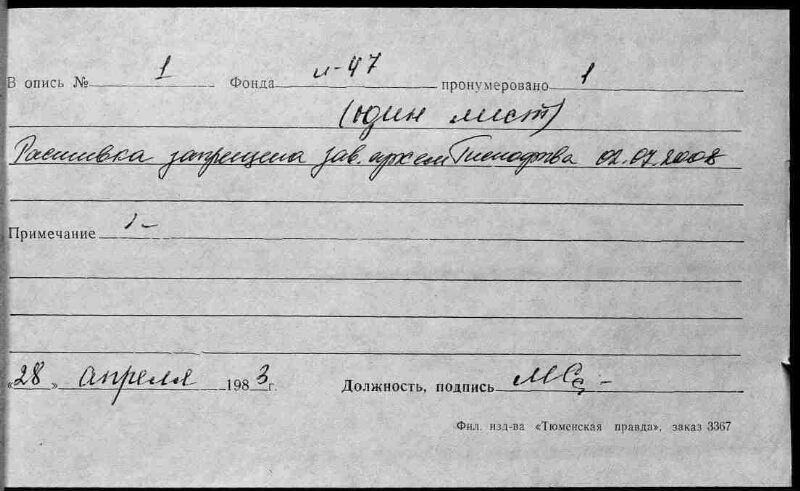 В опись № 1 Фонда и-47 пронумеровано 1
(один лист)
Расшивка запрещена зав. 02.07.2008
Примечание
«28» апреля 1983 г. Должность, подпись
Фил. изд-ва «Тюменская правда», заказ 3367